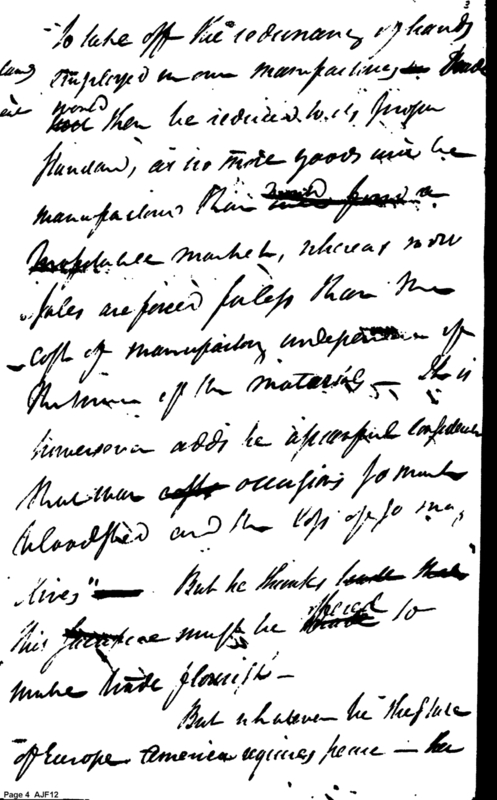 3
"To take off the redundancy of hands
employed in our manufactures Trade
would then be reduced to its proper
standard, as no more goods will be
manufactured than would find a
market, whereas now
sales are forced for less than the
cost of manufactory independence of
the of the materials — It is
however adds he a painful
that war occasions so much
bloodshed and the loss of so many
lives" But he thinks
this must be offered to
make trade flourish —
But whatever be the state
of Europe America requires peace — her
Page 4 AJF12